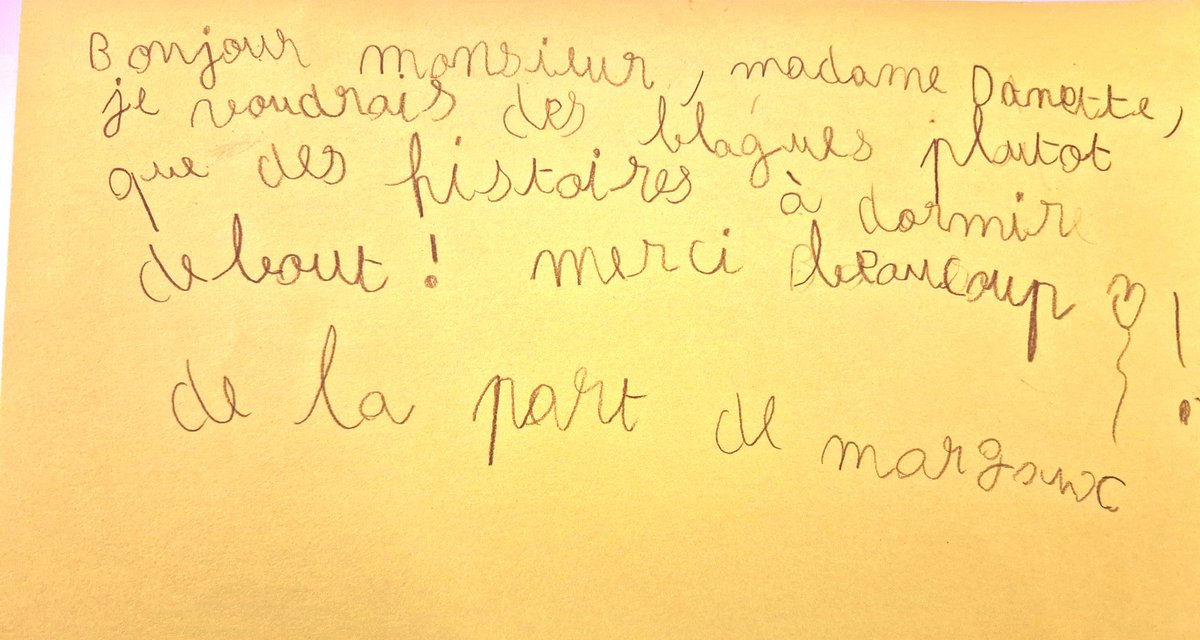 Bonjour monsieur, madame Danette,
je voudrais des blagues plutot
que des histoires à dormire
debout ! merci beaucoup !
de la part de margaux